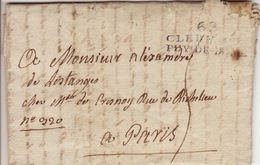 63
CLERM
PUY-DE-D
A Monsieur Alexandre
de Lostanges
chez Mde de Crenay Rue de Richelieu
no 920
a Paris